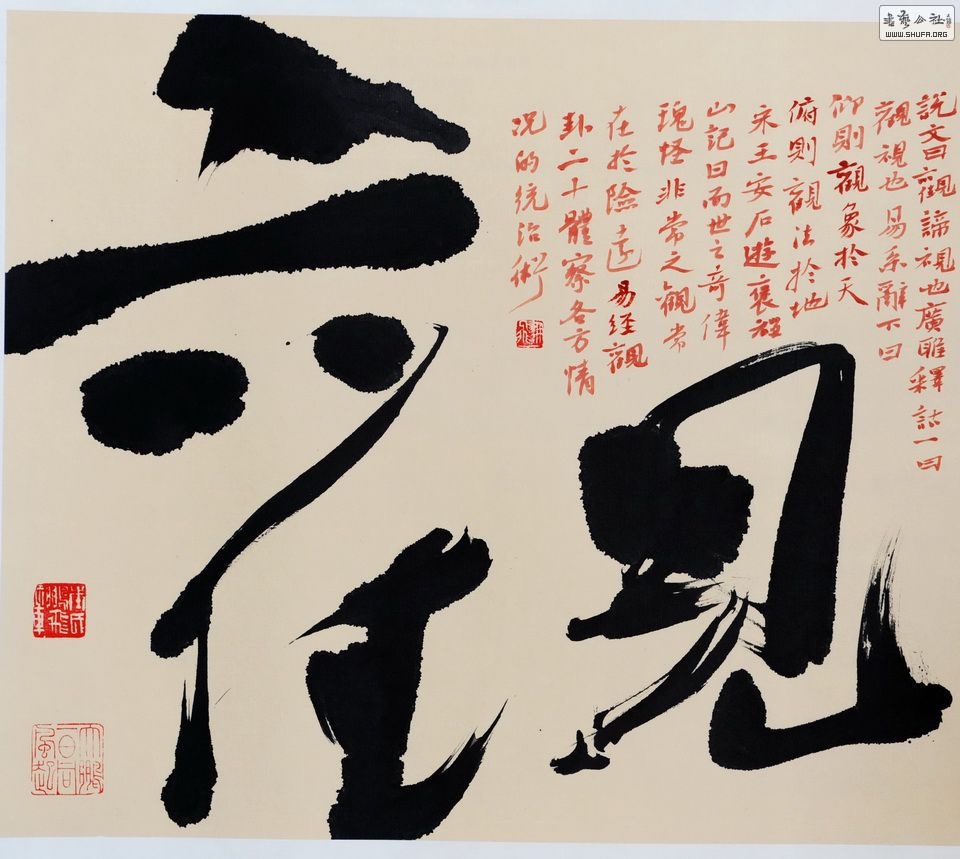 觀
說文曰觀諦視也廣雅釋詁一曰
觀視也易系辭下曰
仰則觀象於天
俯則觀法於地
宋王安石遊褒禪
山記曰而世之奇偉
瑰怪非常之觀常
在於險遠易经觀
卦二十體察各方情
况的统治術
書藝公社
WWW.SHUFA.ORG